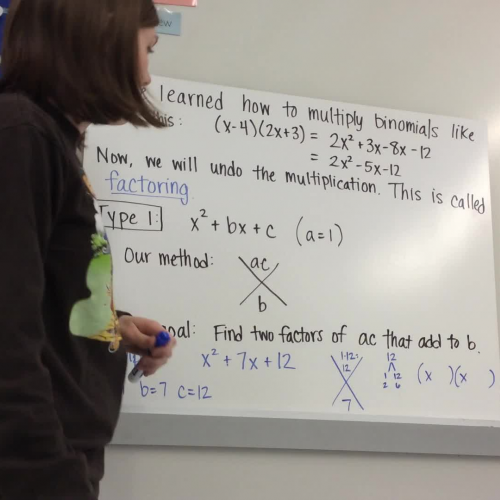 learned how to multiply binomials like
this: (x-4)(2x+3) = 2x² + 3x - 8x - 12
= 2x² - 5x - 12
Now, we will undo the multiplication. This is called
factoring
Type 1: x² + bx + c (a=1)
Our method: ac
b
goal: Find two factors of ac that add to b.
x² + 7x + 12
1·12:
12
7
12
1 12
2 6
(x )(x )
b=7 c=12